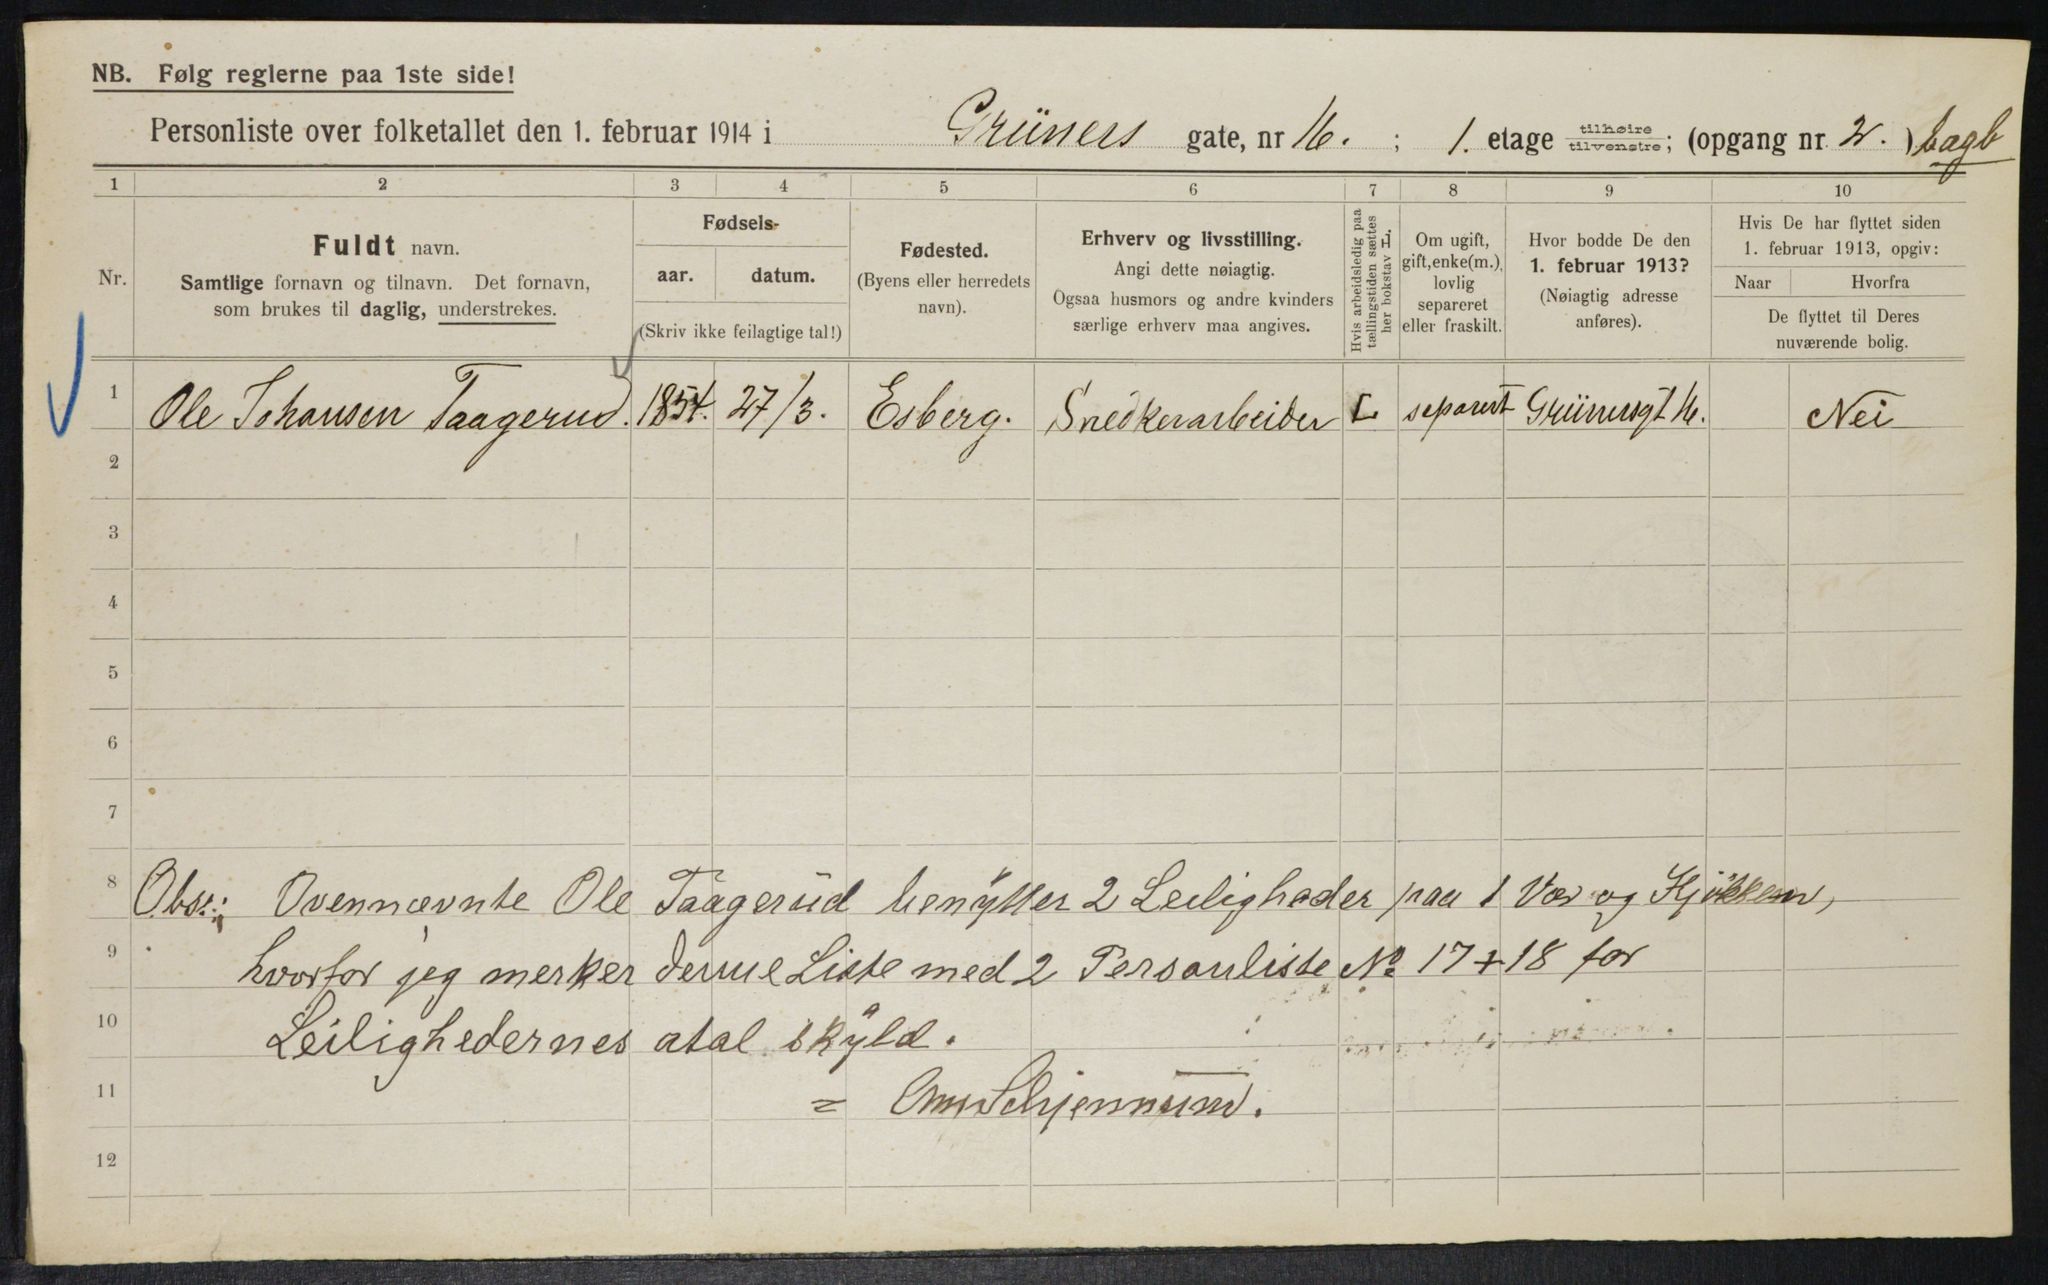 NB. Følg reglerne paa 1ste side!
Personliste over folketallet den 1. februar 1914 i Grüners gate, nr 16. ; 1. etage tilhøire tilvenstre; (opgang nr 2. ) bagb
1 2 3 4 5 6 7 8 9 10
Nr.
Fuldt navn.
Samtlige fornavn og tilnavn. Det fornavn,
som brukes til daglig, understrekes.
Fødsels-
aar. datum.
(Skriv ikke feilagtige tal!)
Fødested.
(Byens eller herredets
navn).
Erhverv og livsstilling.
Angi dette nøiagtig.
Ogsaa husmors og andre kvinders
særlige erhverv maa angives.
Hvis arbeidsledig paa
tællingstiden sættes
her bokstav L.
Om ugift,
gift, enke(m.),
lovlig
separeret
eller fraskilt.
Hvor bodde De den
1. februar 1913?
(Nøiagtig adresse
anføres).
Hvis De har flyttet siden
1. februar 1913, opgiv:
Naar Hvorfra
De flyttet til Deres
nuværende bolig.
1 Ole Johansen Taagerud. 1854. 27/3. Esberg. Snedkerarbeider L separert Grünersgt 16. Nei
2
3
4
5
6
7
8 Obs.: Ovennævnte Ole Taagerud benytter 2 Leiligheder paa 1 Vær og Kjøkken,
9 hvorfor jeg merker denne Liste med 2 Personliste No 17 + 18 for
10 Leilighedernes atal skyld.
11 = Schjennum.
12